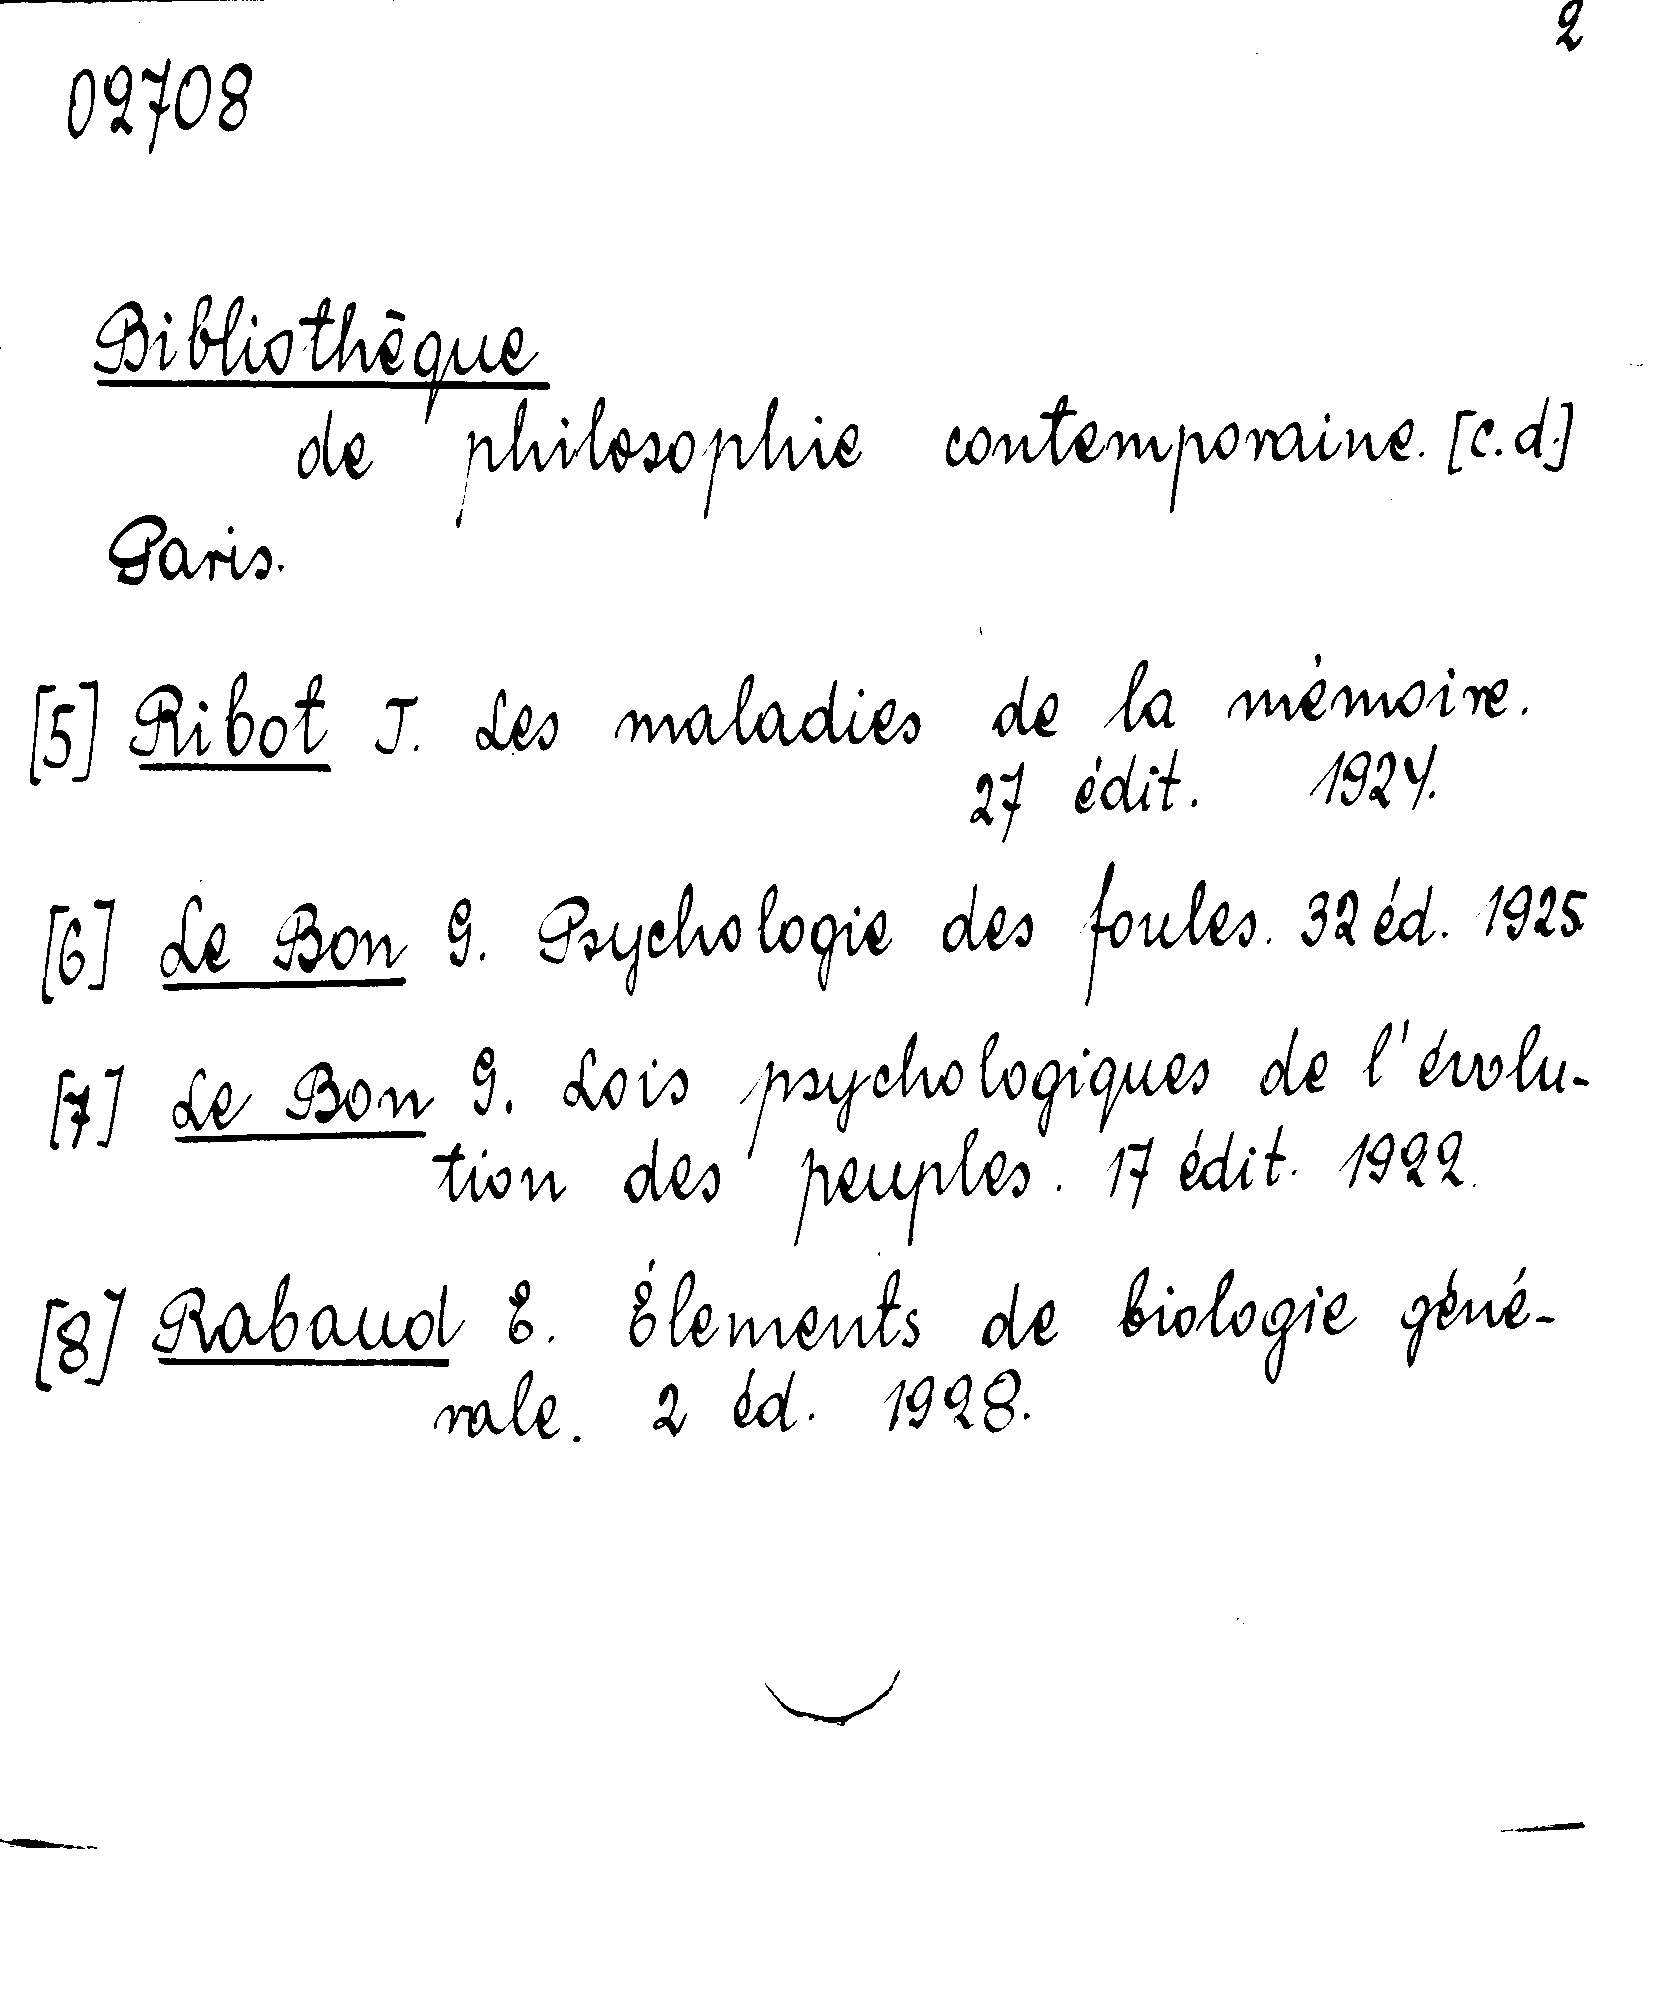 2
02708
Bibliothèque
de philosophie contemporaine. [c.d.]
Paris.
[5] Ribot T. Les maladies de la mémoire.
27 édit. 1924.
[6] Le Bon G. Psychologie des foules. 32 éd. 1925
[7] Le Bon G. Lois psychologiques de l'évolu-
tion des peuples. 17 édit. 1922.
[8] Rabaud E. Élements de biologie géné-
rale. 2 éd. 1928.